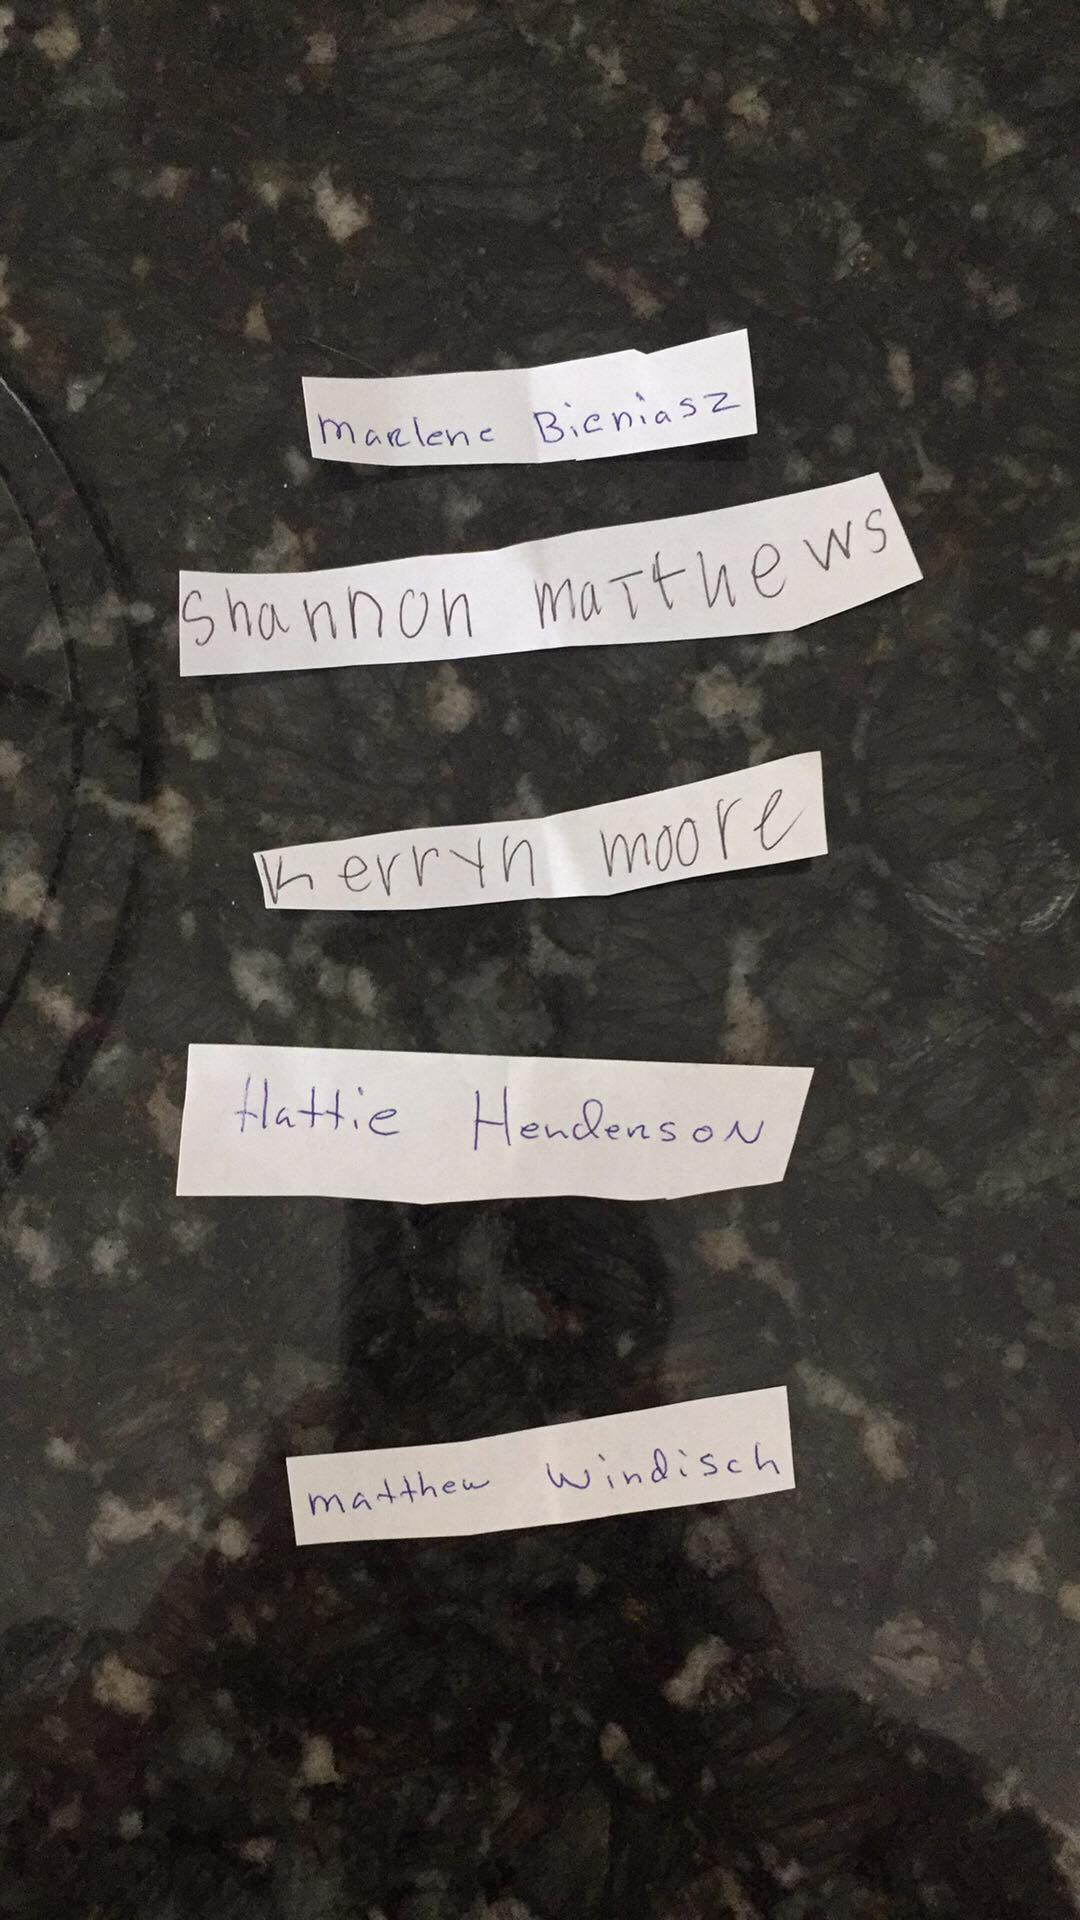 Marlene Bieniasz
Shannon matthews
Kerryn moore
Hattie Henderson
matthew windisch